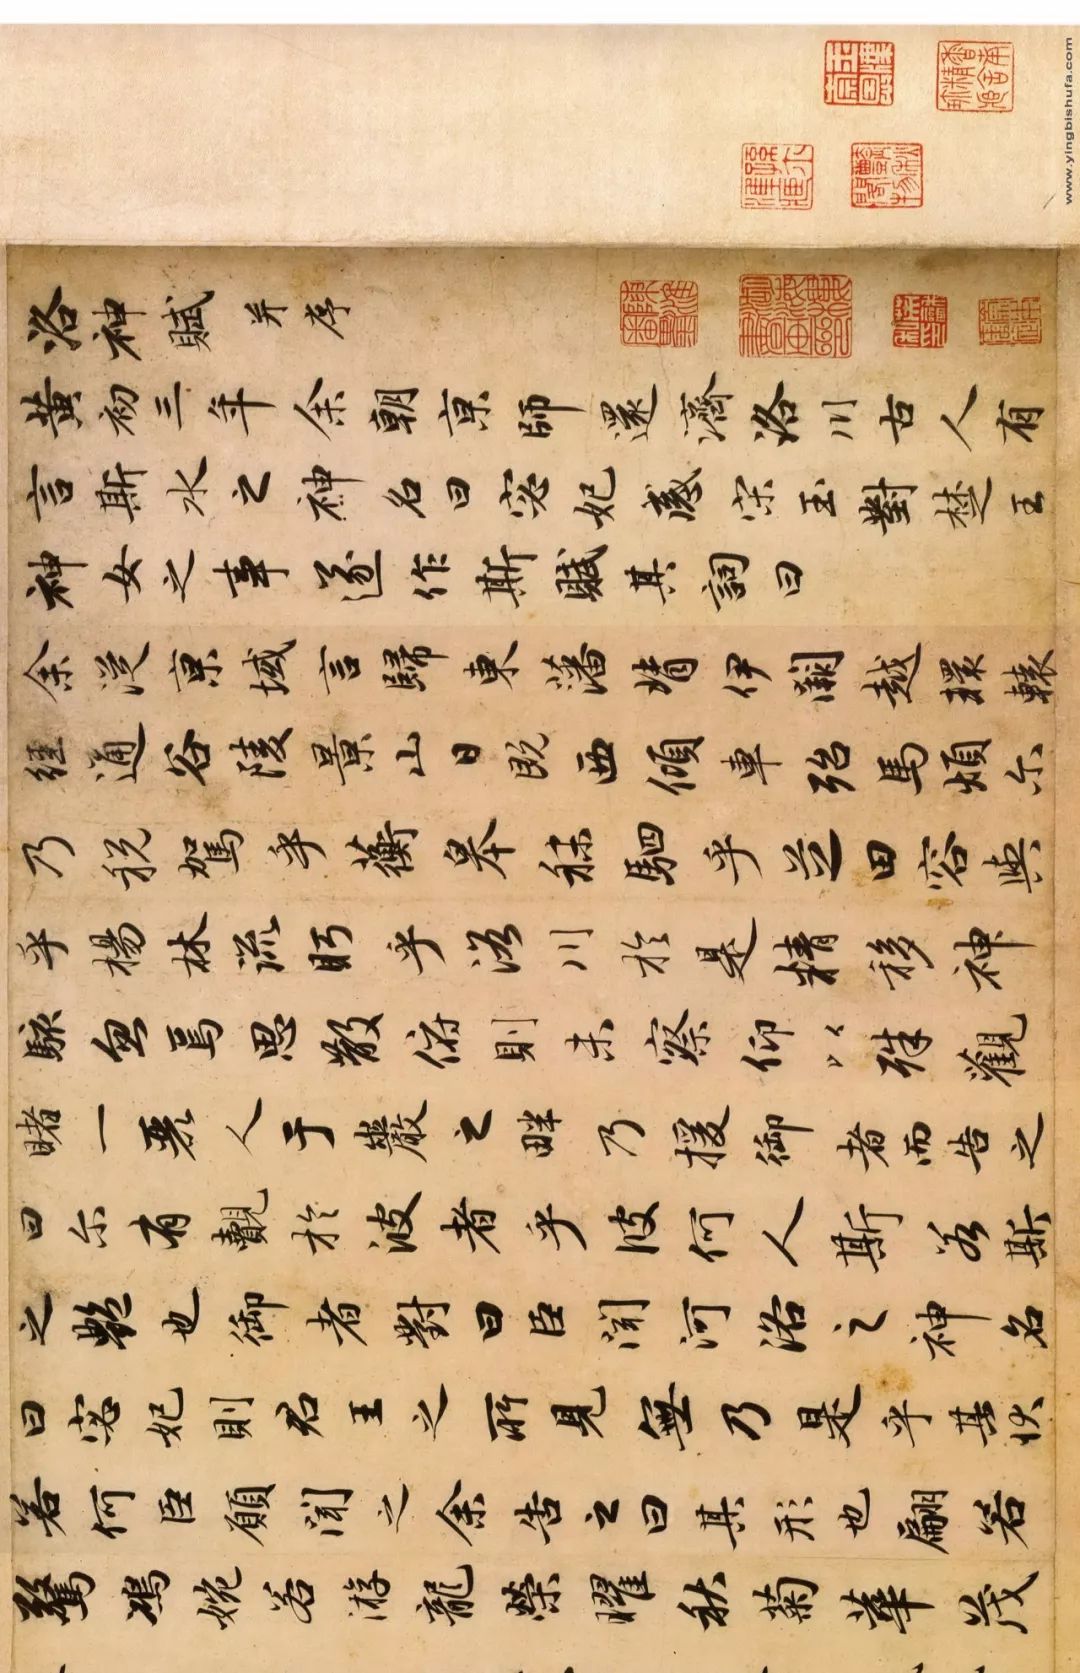 www.yingbishufa.com
洛神賦并序
黃初三年余朝京師還濟洛川古人有
言斯水之神名曰宓妃感宋玉對楚王
神女之事遂作斯賦其詞曰
余從京域言歸東藩背伊闕越轘轅
經通谷陵景山日既西傾車殆馬煩尔
乃税駕乎蘅皋秣駟乎芝田容與
乎楊林流眄乎洛川於是精移神
駭忽焉思散俯則未察仰以殊觀
睹一麗人于巖之畔乃援御者而告之
曰尔有覿於彼者乎彼何人斯若斯
之艷也御者對曰臣聞河洛之神名
曰宓妃則君王之所見無乃是乎其狀
若何臣願聞之余告之曰其形也翩若
驚鴻婉若游龍榮曜秋菊華茂